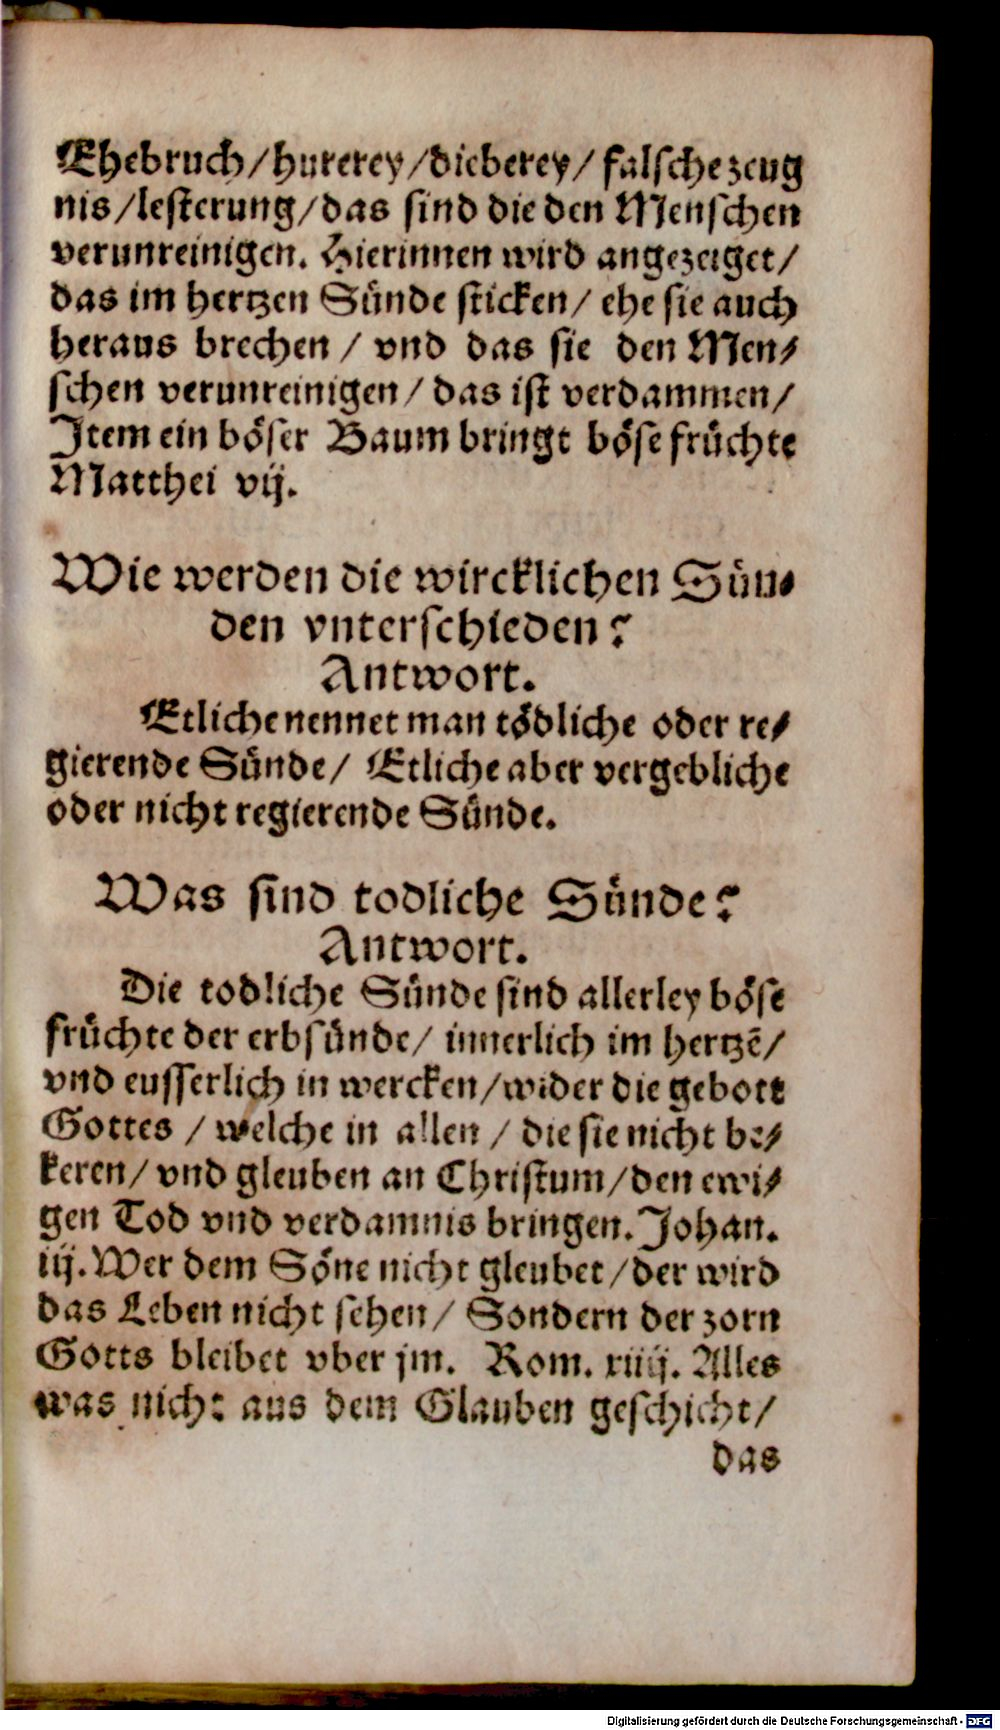 Ehebruch/hurerey/dieberey/ falsche zeug
nis/lesterung/das sind die den Menschen
verunreinigen. Hierinnen wird angezeiget/
das im hertzen Sünde sticken/ ehe sie auch
heraus brechen / vnd das sie den Men-
schen verunreinigen/ das ist verdammen/
Item ein böser Baum bringt böse früchte
Matthei vij.
Wie werden die wircklichen Sün-
den vnterschieden?
Antwort.
Etliche nennet man tödliche oder re-
gierende Sünde/ Etliche aber vergebliche
oder nicht regierende Sünde.
Was sind todliche Sünde?
Antwort.
Die todliche Sünde sind allerley böse
früchte der erbsünde/ innerlich im hertzē/
vnd eusserlich in wercken/wider die gebott
Gottes / welche in allen / die sie nicht be-
keren/ vnd gleuben an Christum/den ewi-
gen Tod vnd verdamnis bringen. Johan.
iij. Wer dem Söne nicht gleubet/der wird
das Leben nicht sehen/ Sondern der zorn
Gotts bleibet vber jm. Rom. xiiij. Alles
was nicht aus dem Glauben geschicht/
das
Digitalisierung gefördert durch die Deutsche Forschungsgemeinschaft - DFG